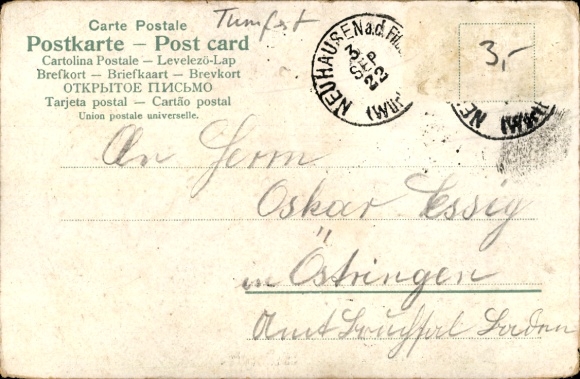 Carte Postale
Turnfest
Postkarte – Post card
Cartolina Postale – Levelezö-Lap
Brefkort – Briefkaart – Brevkort
ОТКРЫТОЕ ПИСЬМО
Tarjeta postal – Cartão postal
Union postale universelle.
NEUHAUSEN a.d. Fild
3 SEP 22
(Wür
3,-
NE
An Herrn
Oskar Essig
in Östringen
Amt Bruchsal Baden